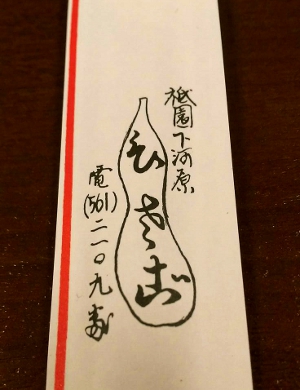 祇園下河原
ひさご
電(561)二一〇九番